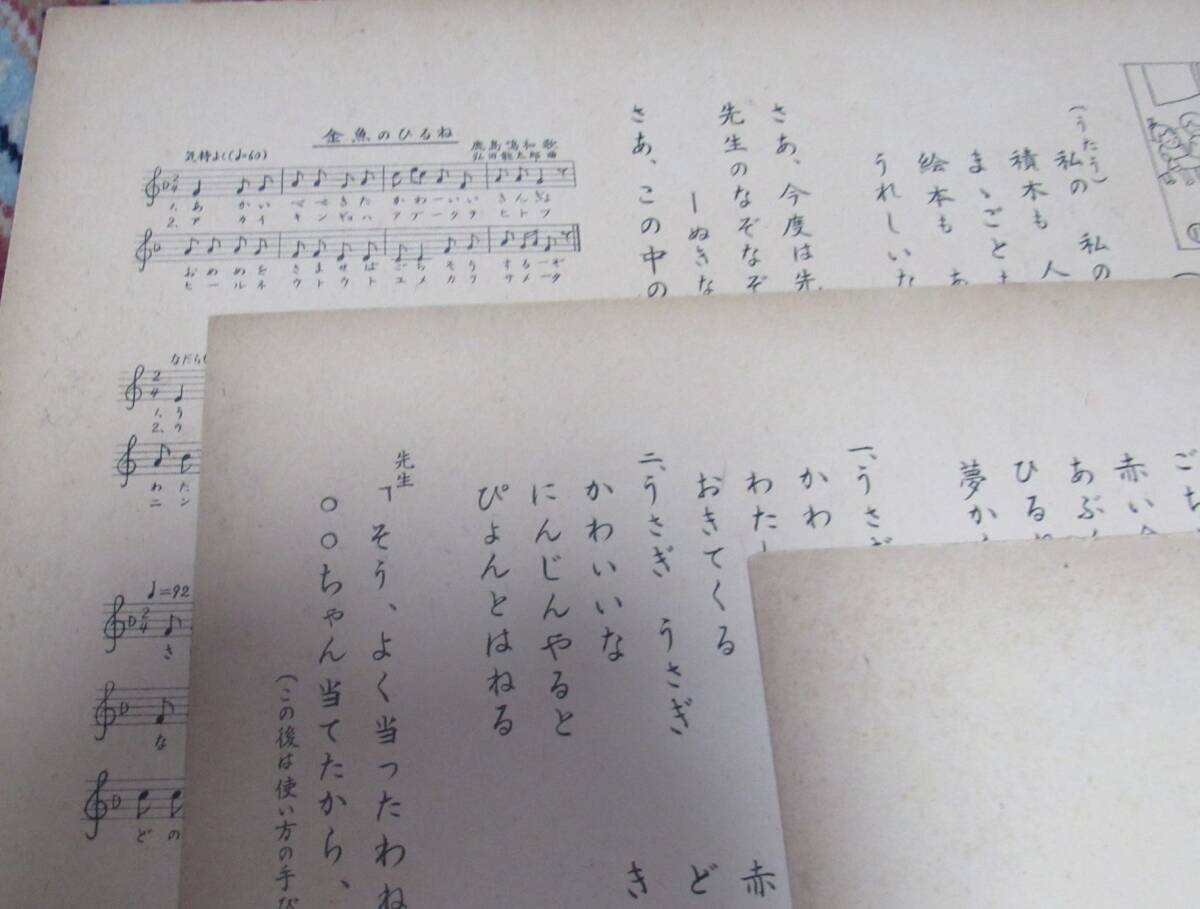 金魚のひるね
鹿島鳴秋歌
弘田龍太郎曲
気持よく(♩=60)
1. あ かい べべきた かわーいい きんぎょ
2. ア カイ キンギョハ アブークヲ ヒトツ
おめめを さませば ごちそう するーぞ
ヒールネ ウトウト ユメカラ サメータ
なだら
1. う
2. ウ
わ た
ニ ン
♩=92
さ
な
ど の
(うたう)
私の 私の
積木も 人
まゝごと
絵本も あ
うれしいな
さあ、今度は先
先生のなぞなぞ
ーぬきな
さあ、この中の
ごち
赤い金
あぶく
ひるね
夢から
一、うさぎ
かわ
わたし
おきてくる
二、うさぎ うさぎ
かわいいな
にんじんやると
ぴょんとはねる
先生
「そう、よく当ったわね
○○ちゃん当てたから、
(この後は使い方の手び
赤
ど
き